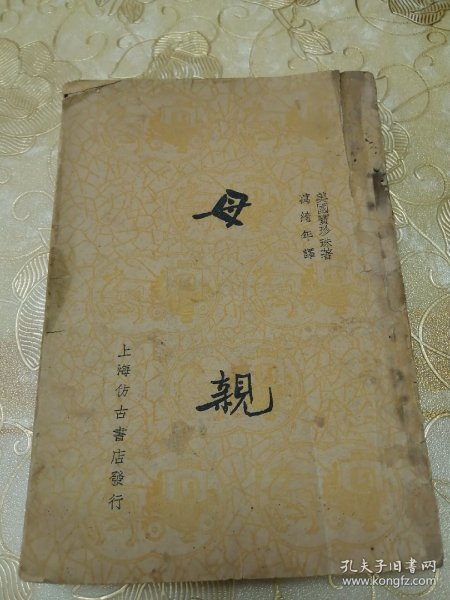 美國賽珍珠著
萬綺年譯
母親
上海仿古書店發行
孔夫子旧书网
www.kongfz.com